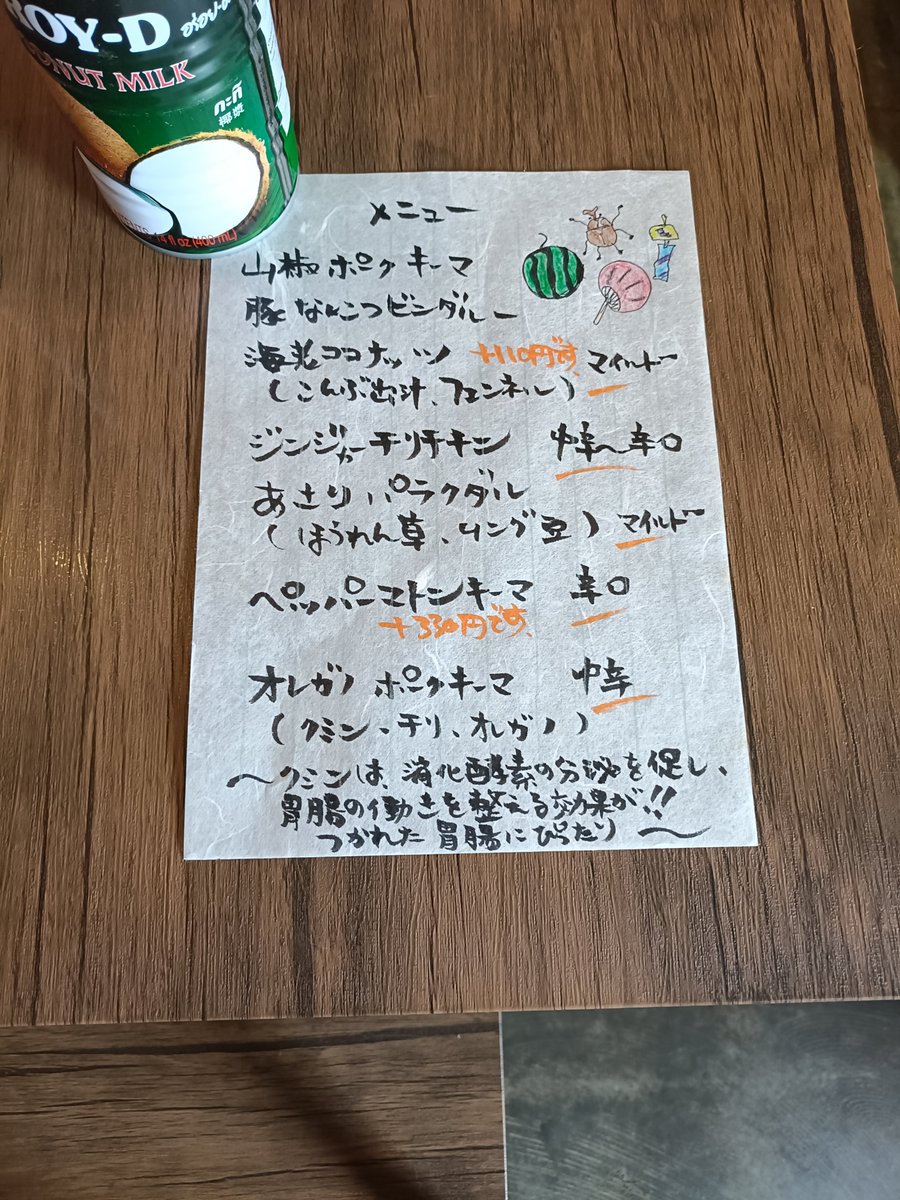 ROY-D อร่อย-ดี
NUT MILK
กะทิ
椰漿
14 fl oz (400 mL)
メニュー
山椒ポークキーマ
豚なんこつビンダルー
海老ココナッツ +110円です、マイルド
(こんぶ出汁、フェンネル)
ジンジャーチリチキン 中辛〜辛口
あさりパラクダル
(ほうれん草、ムング豆) マイルド
ペッパーマトンキーマ 辛口
+330円です、
オレガノ ポークキーマ 中辛
(クミン、チリ、オレガノ)
〜クミンは、消化酵素の分泌を促し、
胃腸の働きを整える効果が!!
つかれた胃腸にぴったり〜